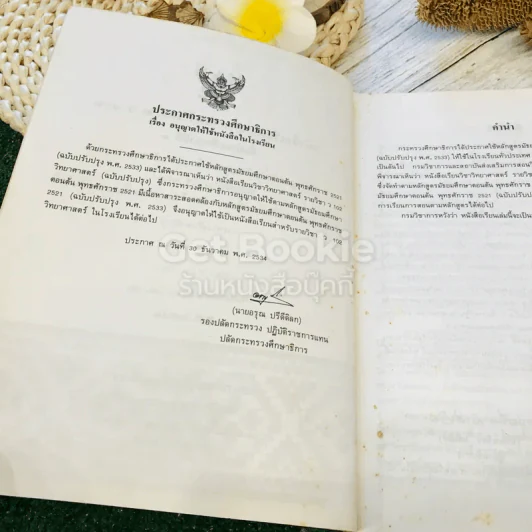 ประกาศกระทรวงศึกษาธิการ
เรื่อง อนุญาตให้ใช้หนังสือในโรงเรียน
ด้วยกระทรวงศึกษาธิการได้ประกาศใช้หลักสูตรมัธยมศึกษาตอนต้น พุทธศักราช 2521
(ฉบับปรับปรุง พ.ศ. 2533) และได้พิจารณาเห็นว่า หนังสือเรียนวิชาวิทยาศาสตร์ ว 102
วิทยาศาสตร์ (ฉบับปรับปรุง) ซึ่งกระทรวงศึกษาธิการอนุญาตให้ใช้ตามหลักสูตรมัธยมศึกษา
ตอนต้น พุทธศักราช 2521 มีเนื้อหาสาระสอดคล้องกับหลักสูตรมัธยมศึกษาตอนต้น พุทธศักราช
2521 (ฉบับปรับปรุง พ.ศ. 2533) จึงอนุญาตให้ใช้เป็นหนังสือเรียนสำหรับรายวิชา ว 102
วิทยาศาสตร์ ในโรงเรียนได้ต่อไป
ประกาศ ณ วันที่ 30 ธันวาคม พ.ศ. 2534
(นายอรุณ ปรีดีดิลก)
รองปลัดกระทรวง ปฏิบัติราชการแทน
ปลัดกระทรวงศึกษาธิการ
Get Bookie
ร้านหนังสือบุ๊คกี้
คำนำ
กระทรวงศึกษาธิการได้ประกาศใช้หลักสูตรมัธยม
(ฉบับปรับปรุง พ.ศ. 2533) ให้ใช้ในโรงเรียนทั่วประเทศ
เป็นต้นไป กรมวิชาการและสถาบันส่งเสริมการสอน
พิจารณาเห็นว่า หนังสือเรียนวิชาวิทยาศาสตร์ ว 102
ซึ่งจัดทำตามหลักสูตรมัธยมศึกษาตอนต้น พุทธศักราช
มัธยมศึกษาตอนต้น พุทธศักราช 2521 (ฉบับปรับปรุง
การเรียนการสอนตามหลักสูตรได้ต่อไป
กรมวิชาการหวังว่า หนังสือเรียนเล่มนี้จะเป็น